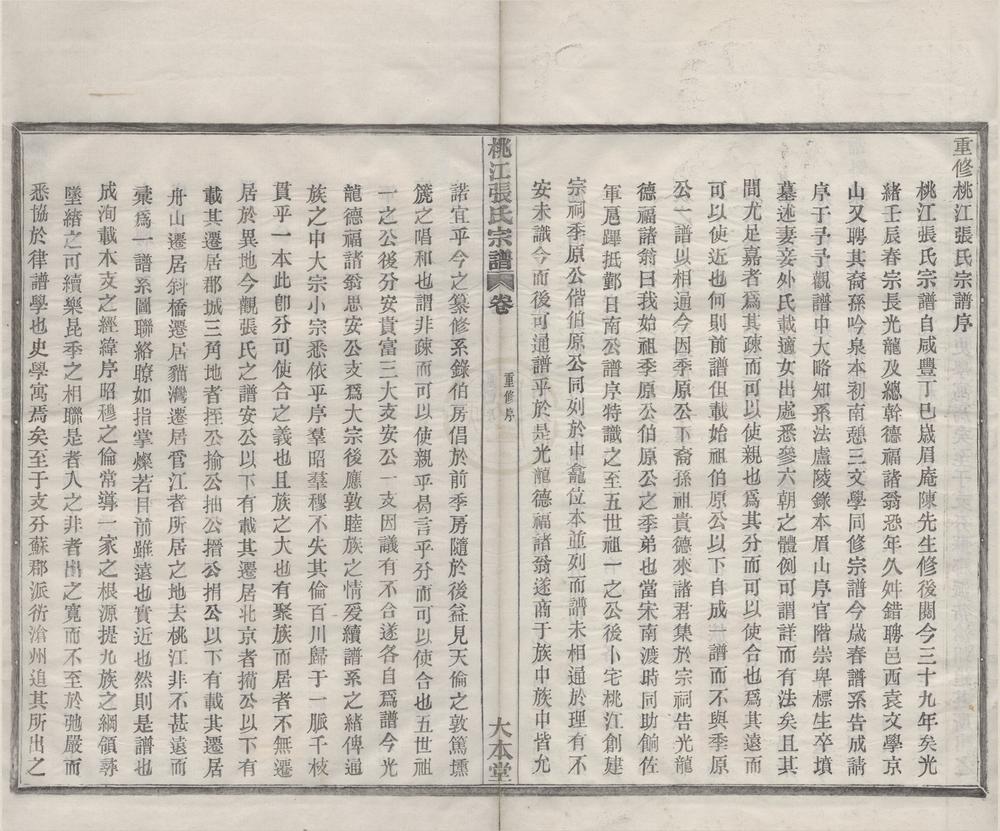 重修桃江張氏宗譜序
桃江張氏宗譜自咸豐丁巳歲眉庵陳先生修後閱今三十九年矣光
緒壬辰春宗長光龍及總幹德福諸翁恐年久舛錯聘邑西袁文學京
山又聘其裔孫吟泉本初南憩三文學同修宗譜今歲春譜系告成請
序于予予觀譜中大略知系法盧陵錄本眉山序官階崇卑標生卒墳
墓述妻妾外氏載適女出處悉參六朝之體例可謂詳而有法矣且其
間尤足嘉者爲其疎而可以使親也爲其分而可以使合也爲其遠而
可以使近也何則前譜但載始祖伯原公以下自成一譜而不與季原
公一譜以相通今因季原公下裔孫祖貴德來諸君集於宗祠告光龍
德福諸翁曰我始祖季原公伯原公之季弟也當宋南渡時同助餉佐
軍扈蹕抵鄞日南公譜序特識之至五世祖一之公後卜宅桃江創建
宗祠季原公偕伯原公同列於中龕位本並列而譜未相通於理有不
安未識今而後可通譜乎於是光龍德福諸翁遂商于族中族中皆允
桃江張氏宗譜
卷
重修序
大本堂
諾宜乎今之纂修系錄伯房倡於前季房隨於後益見天倫之敦篤壎
篪之唱和也謂非疎而可以使親乎曷言乎分而可以使合也五世祖
一之公後分安貴富三大支安公一支因議有不合遂各自爲譜今光
龍德福諸翁思安公支爲大宗後應敦睦族之情爰續譜系之緒俾通
族之中大宗小宗悉依乎序羣昭羣穆不失其倫百川歸于一脈千枝
貫乎一本此卽分可使合之義也且族之大也有聚族而居者不無遷
居於異地今觀張氏之譜安公以下有載其遷居北京者揭公以下有
載其遷居郡城三角地者挃公揄公拙公搢公捎公以下有載其遷居
舟山遷居斜橋遷居貓灣遷居官江者所居之地去桃江非不甚遠而
彙爲一譜系圖聯絡瞭如指掌燦若目前雖遠也實近也然則是譜也
成洵載本支之經緯序昭穆之倫常導一家之根源提九族之綱領尋
墜緒之可續樂昆季之相聯是者入之非者出之寬而不至於弛嚴而
悉協於律譜學也史學寓焉矣至于支分蘇郡派衍滄州追其所出之